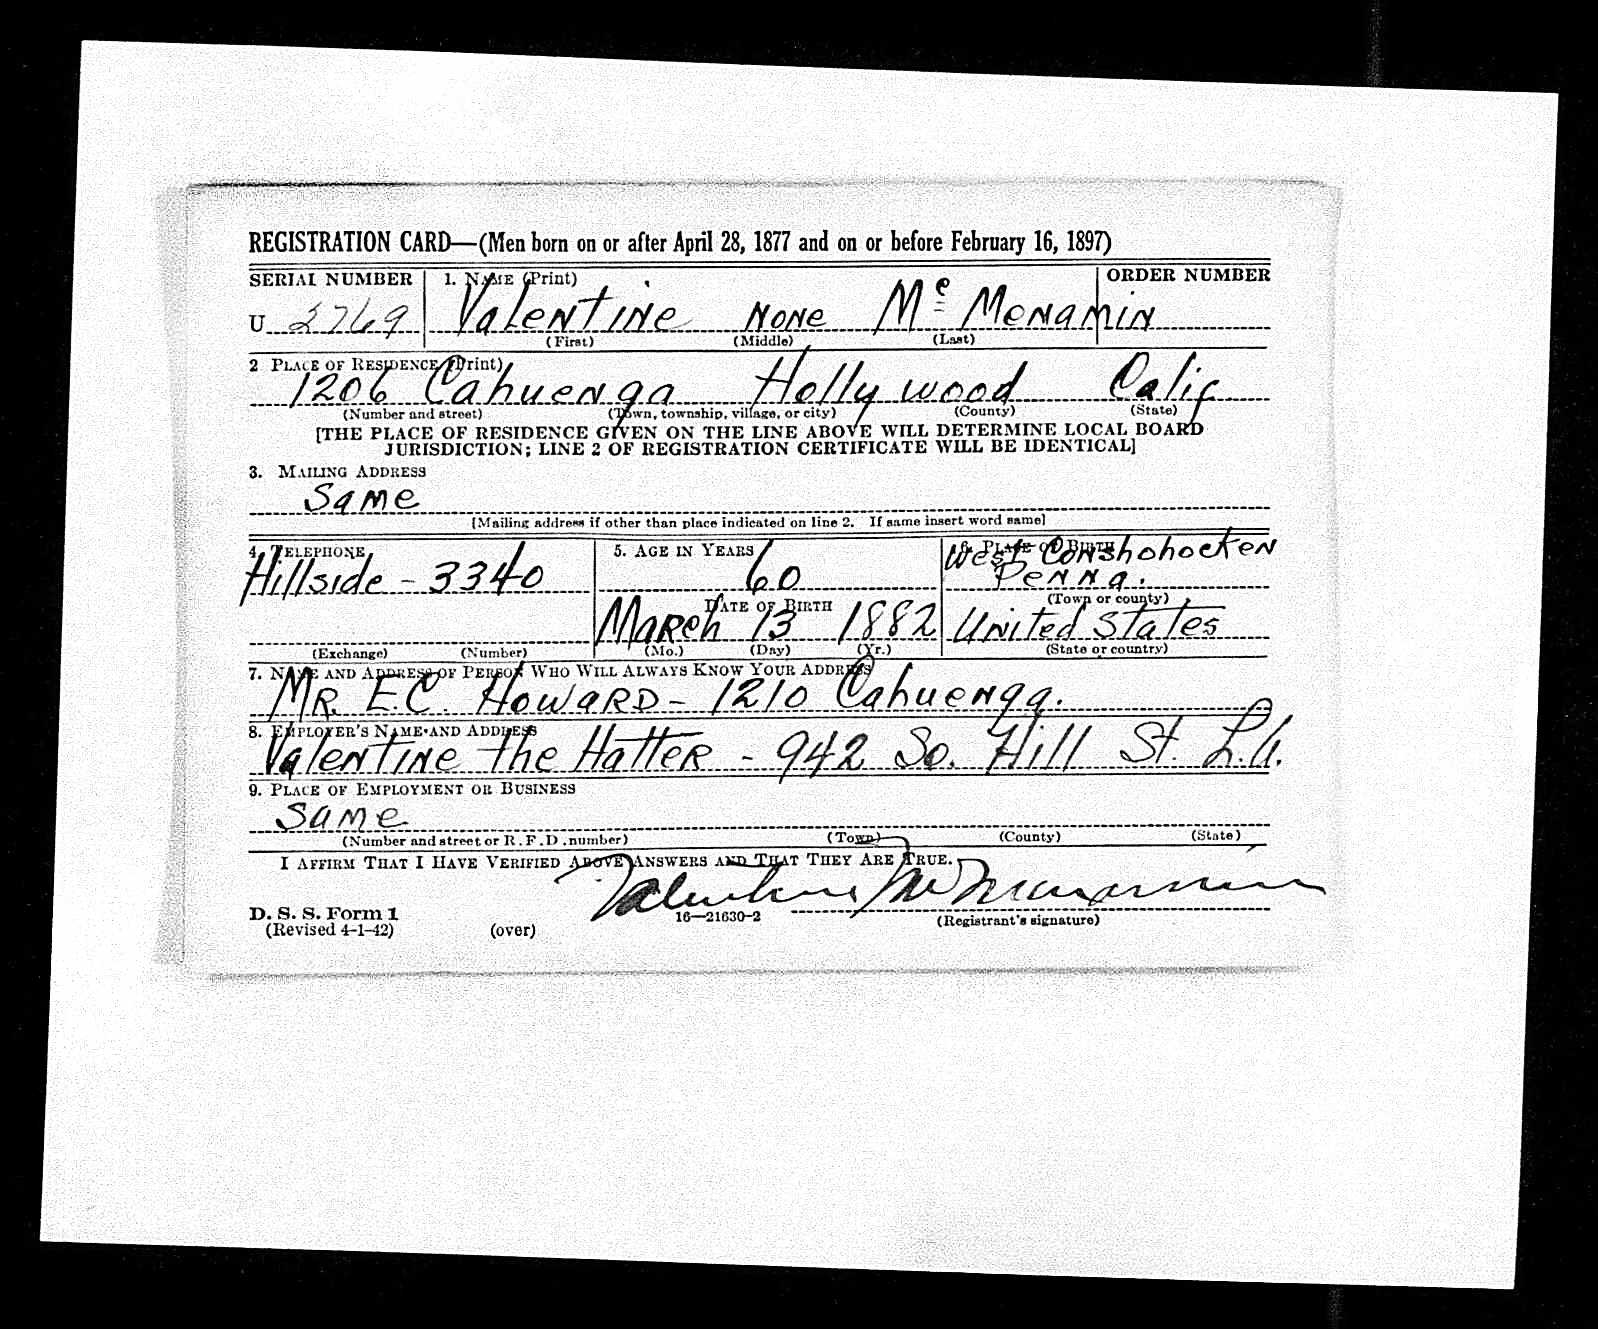 REGISTRATION CARD—(Men born on or after April 28, 1877 and on or before February 16, 1897)
SERIAL NUMBER 1. NAME (Print) ORDER NUMBER
U 2769 Valentine None Mc Menamin
(First) (Middle) (Last)
2 PLACE OF RESIDENCE (Print)
1206 Cahuenga Hollywood Calif
(Number and street) (Town, township, village, or city) (County) (State)
[THE PLACE OF RESIDENCE GIVEN ON THE LINE ABOVE WILL DETERMINE LOCAL BOARD
JURISDICTION; LINE 2 OF REGISTRATION CERTIFICATE WILL BE IDENTICAL]
3. MAILING ADDRESS
Same
[Mailing address if other than place indicated on line 2. If same insert word same]
4. TELEPHONE 5. AGE IN YEARS 6. PLACE OF BIRTH
Hillside - 3340 60 West Conshohocken
Penna.
DATE OF BIRTH (Town or county)
March 13 1882 United States
(Exchange) (Number) (Mo.) (Day) (Yr.) (State or country)
7. NAME AND ADDRESS OF PERSON WHO WILL ALWAYS KNOW YOUR ADDRESS
Mr. E.C. Howard - 1210 Cahuenga.
8. EMPLOYER'S NAME AND ADDRESS
Valentine the Hatter - 942 So. Hill St. L.A.
9. PLACE OF EMPLOYMENT OR BUSINESS
Same
(Number and street or R. F. D. number) (Town) (County) (State)
I AFFIRM THAT I HAVE VERIFIED ABOVE ANSWERS AND THAT THEY ARE TRUE.
Valentine McMenamin
D. S. S. Form 1 16—21630-2 (Registrant's signature)
(Revised 4-1-42) (over)